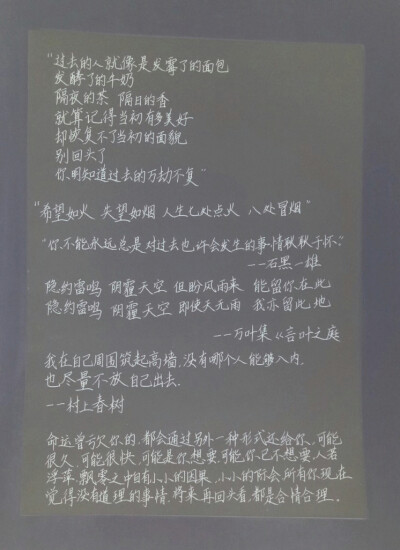 "过去的人就像是发霉了的面包
发酵了的牛奶
隔夜的茶 隔日的香
就算记得当初有多美好
却恢复不了当初的面貌
别回头了
你明知道过去的万劫不复"
"希望如火 失望如烟 人生七处点火 八处冒烟"
"你不能永远总是对过去也许会发生的事情耿耿于怀."
——石黑一雄
隐约雷鸣 阴霾天空 但盼风雨来 能留你在此
隐约雷鸣 阴霾天空 即使天无雨 我亦留此地
——万叶集《言叶之庭
我在自己周围筑起高墙,没有哪个人能够入内,
也尽量不放自己出去.
——村上春树
命运曾亏欠你的,都会通过另外一种形式还给你,可能
很久,可能很快,可能是你想要,可能你已不想要,人若
浮萍,飘零之中自有小小的因果,小小的际会,所有你现在
觉得没有道理的事情,将来再回头看,都是合情合理.